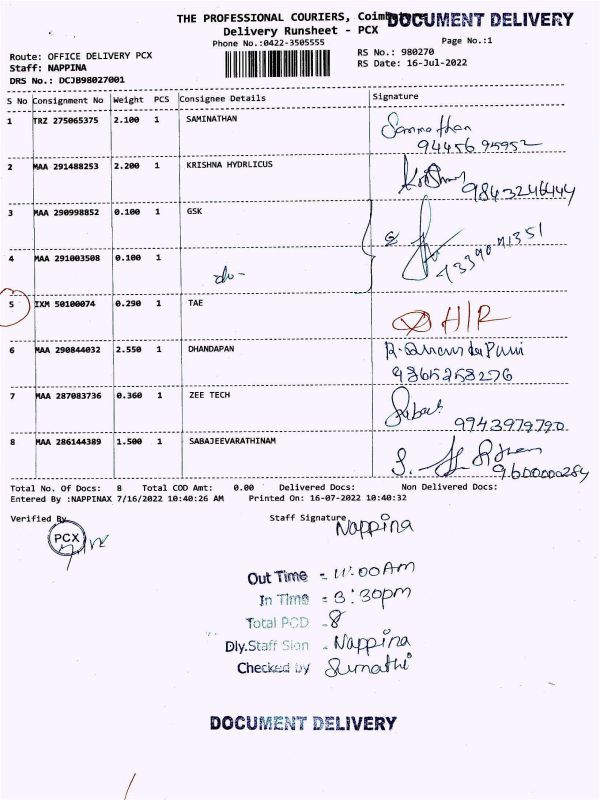 THE PROFESSIONAL COURIERS, Coimbatore
DOCUMENT DELIVERY
Delivery Runsheet - PCX
Phone No.:0422-3505555
Page No.:1
Route: OFFICE DELIVERY PCX
RS No.: 980270
Staff: NAPPINA
RS Date: 16-Jul-2022
DRS No.: DCJB98027001
S No Consignment No Weight PCS Consignee Details Signature
1 TRZ 275065375 2.100 1 SAMINATHAN
94456 95952
2 MAA 291488253 2.200 1 KRISHNA HYDRLICUS
9843246444
3 MAA 290998852 0.100 1 GSK
4 MAA 291003508 0.100 1
do-
5 IXM 50100074 0.290 1 TAE H/R
6 MAA 290844032 2.550 1 DHANDAPAN
9865258276
7 MAA 287083736 0.360 1 ZEE TECH
9743979790
8 MAA 286144389 1.500 1 SABAJEEVARATHINAM
Total No. Of Docs: 8 Total COD Amt: 0.00 Delivered Docs: Non Delivered Docs:
Entered By :NAPPINAX 7/16/2022 10:40:26 AM Printed On: 16-07-2022 10:40:32
Verified By
Staff Signature Nappina
PCX
Out Time - 11:00 Am
In Time = 3:30pm
Total POD - 8
Dly.Staff Sign - Nappina
Checked by Sumathi
DOCUMENT DELIVERY